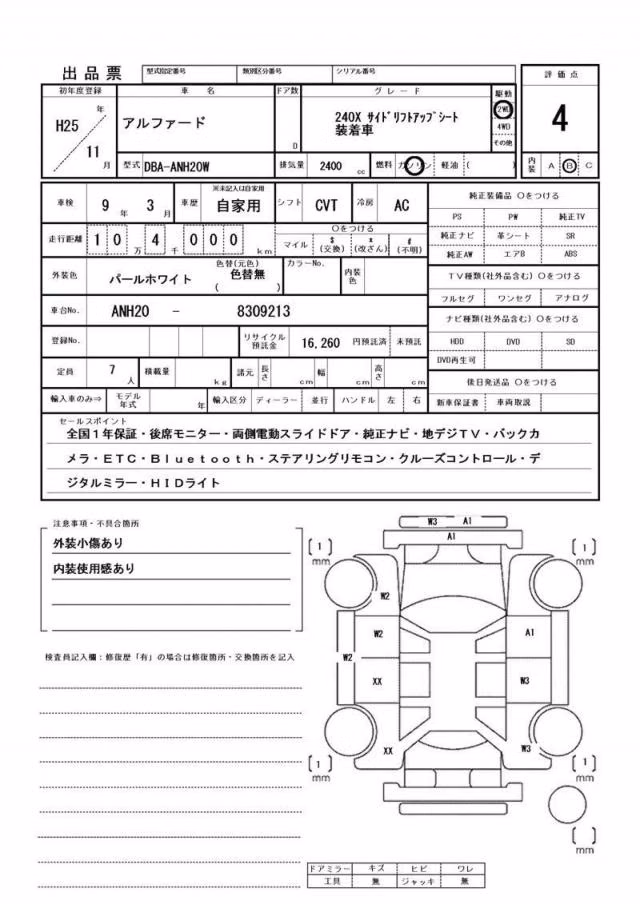 出品票 型式指定番号 類別区分番号 シリアル番号 評価点
初年度登録 車名 ドア数 グレード 駆動
H25 年 アルファード D 240X サイドリフトアップシート 2WD 4
装着車 4WD
11 月 その他
型式 DBA-ANH20W 排気量 2400 cc 燃料 ガソリン 軽油 ( ) 内装 A B C
車検 9年 3月 車歴 ※未記入は自家用 自家用 シフト CVT 冷房 AC 純正装備品 ○をつける
PS PW 純正TV
走行距離 10万4千000km ○をつける 純正ナビ 革シート SR
マイル $(交換) x(改ざん) #(不明) 純正AW エアB ABS
外装色 パールホワイト 色替(元色) 色替無 ( ) カラーNo. 内装色 TV種類(社外品含む) ○をつける
フルセグ ワンセグ アナログ
車台No. ANH20 - 8309213 ナビ種類(社外品含む) ○をつける
登録No. リサイクル預託金 16,260 円預託済 未預託 HDD DVD SD
DVD再生可
定員 7人 積載量 kg 諸元 長さ cm 幅 cm 高さ cm 後日発送品 ○をつける
輸入車のみ⇒ モデル年式 年 輸入区分 ディーラー 並行 ハンドル 左 右 新車保証書 車両取説
セールスポイント
全国1年保証・後席モニター・両側電動スライドドア・純正ナビ・地デジTV・バックカ
メラ・ETC・Bluetooth・ステアリングリモコン・クルーズコントロール・デ
ジタルミラー・HIDライト
注意事項・不具合箇所
外装小傷あり
内装使用感あり
検査員記入欄:修復歴「有」の場合は修復箇所・交換箇所を記入
W3 A1
A1
[1] mm [1] mm
W2
W2 A1
W2
XX W3
XX W3
[1] mm [1] mm
[ ] mm
ドアミラー キズ ヒビ ワレ
工具 無 ジャッキ 無